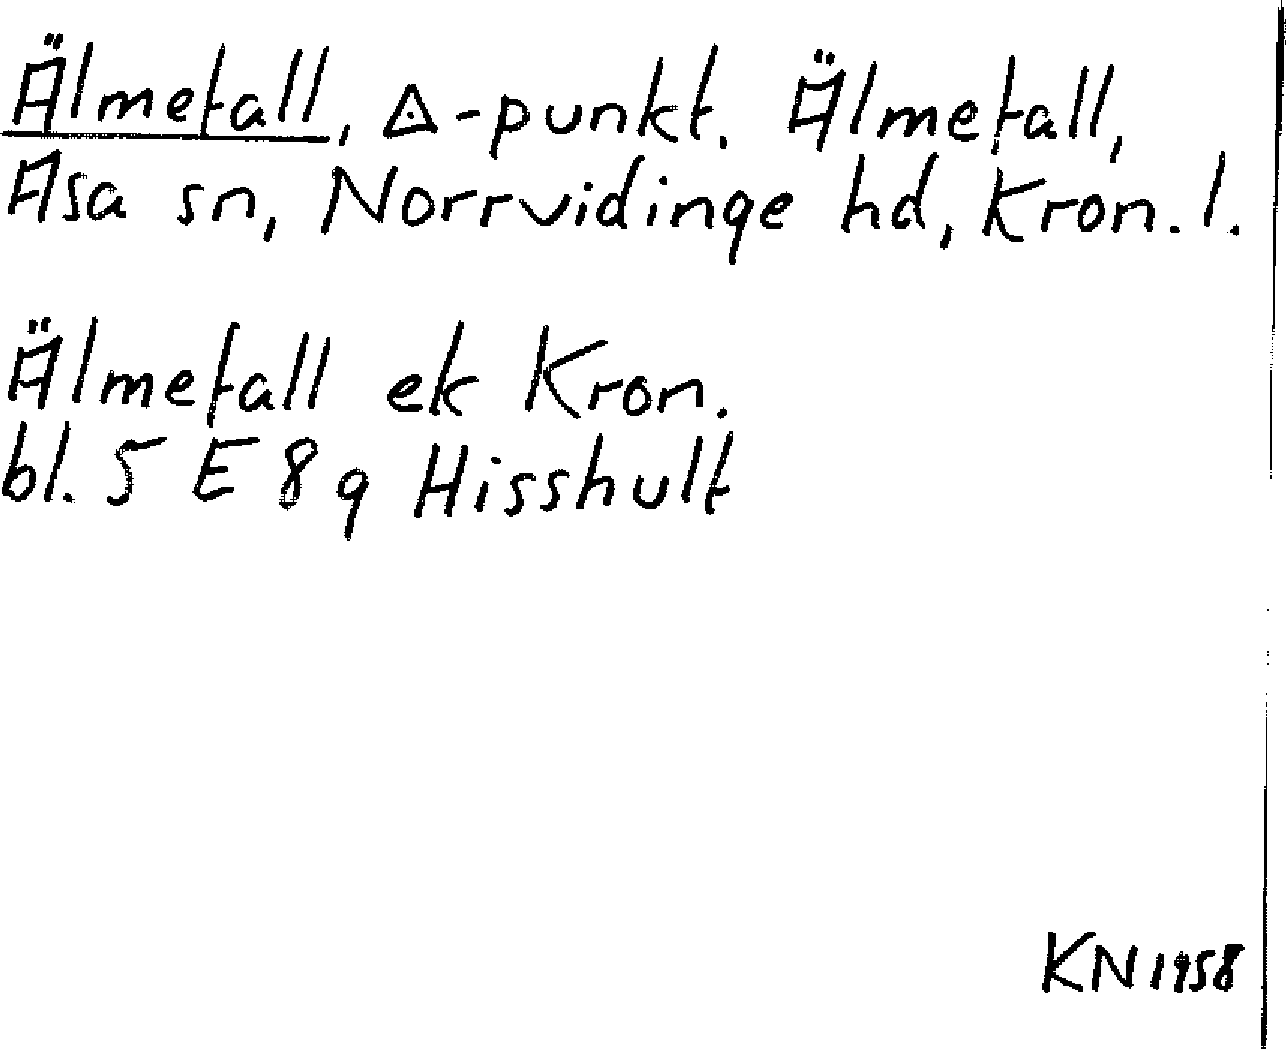 Älmetall, Δ-punkt. Älmetall,
Asa sn, Norrvidinge hd, Kron. l.
Älmetall ek Kron.
bl. 5 E 8 g Hisshult
KN 1958